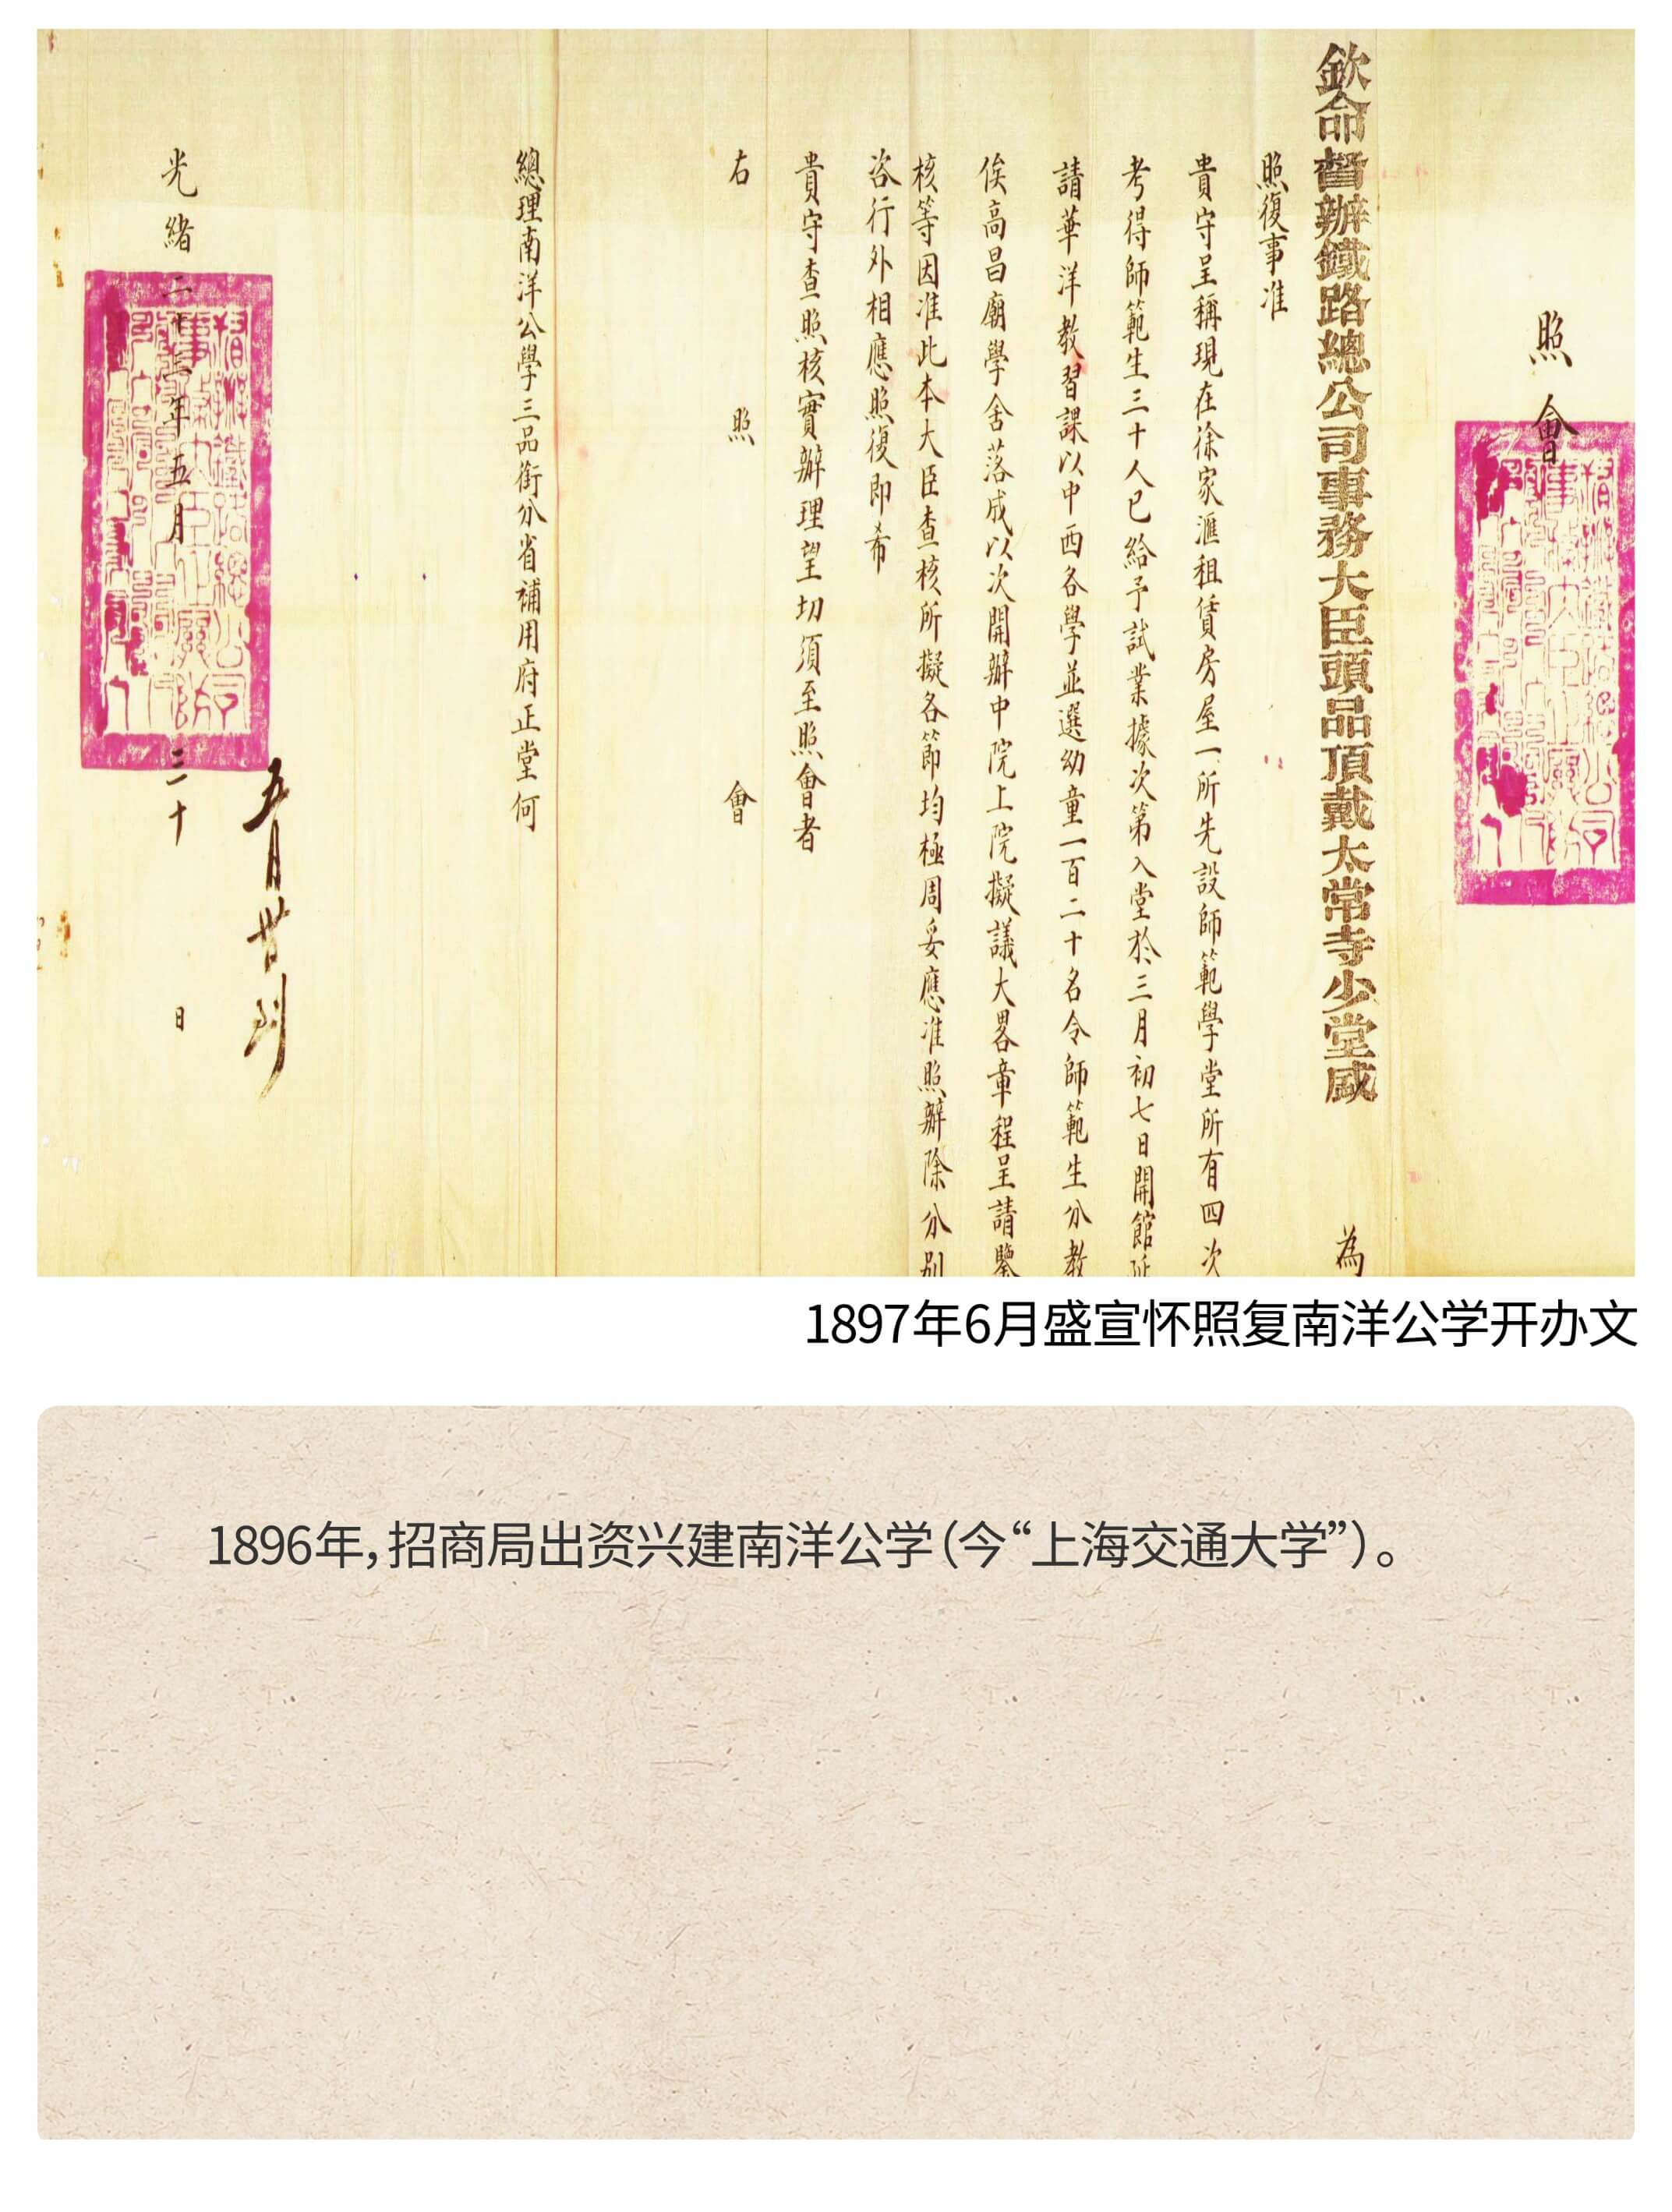 照會
欽命督辦鐵路總公司事務大臣頭品頂戴太常寺少堂盛 為
照復事准
貴守呈稱現在徐家滙租賃房屋一所先設師範學堂所有四次
考得師範生三十人已給予試業據次第入堂於三月初七日開館延
請華洋教習課以中西各學並選幼童一百二十名令師範生分教
俟高昌廟學舍落成以次開辦中院上院擬議大畧章程呈請鑒
核等因准此本大臣查核所擬各節均極周妥應准照辦除分别
咨行外相應照復即希
貴守查照核實辦理望切須至照會者
右 照 會
總理南洋公學三品銜分省補用府正堂何
五月廿
光緒二十三年五月 三十 日
1897年6月盛宣怀照复南洋公学开办文
1896年，招商局出资兴建南洋公学（今“上海交通大学”）。